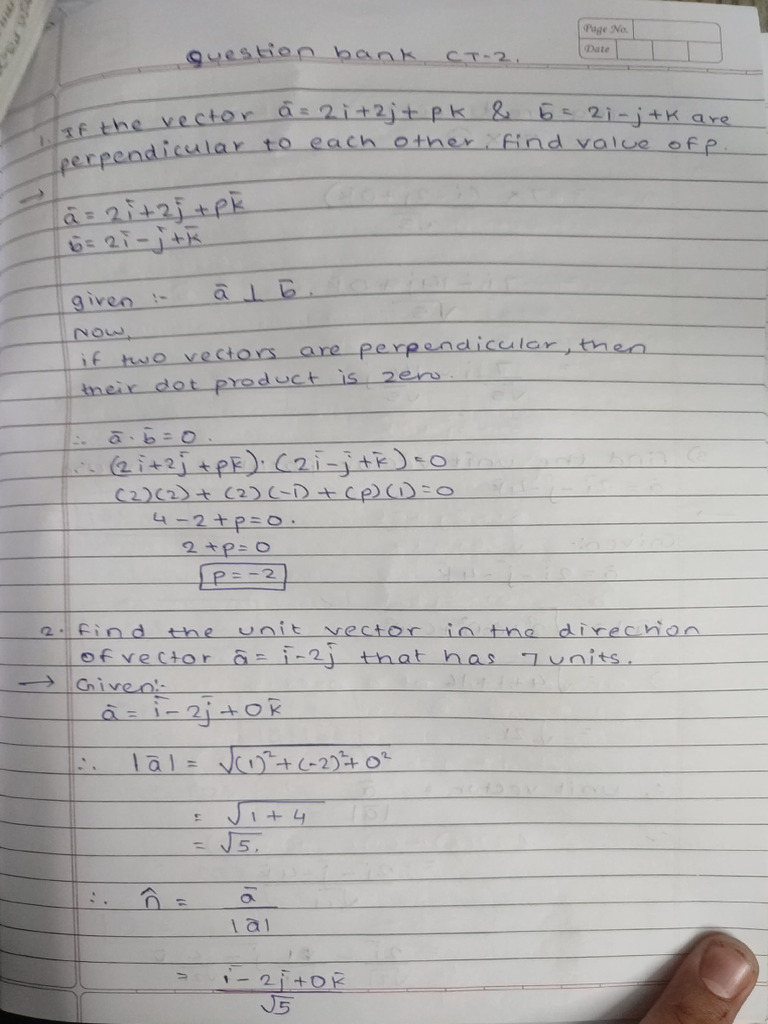 Page No.
Date
Question bank CT-2.
1. If the vector ā = 2i+2j+pk & b̄ = 2i-j+k are
perpendicular to each other. find value of p.
→
ā = 2ī+2j̄+pk̄
b̄ = 2ī-j̄+k̄
given :- ā ⊥ b̄.
Now,
if two vectors are perpendicular, then
their dot product is zero.
∴ ā·b̄ = 0.
∴ (2ī+2j̄+pk̄)·(2ī-j̄+k̄)=0
(2)(2) + (2)(-1) + (p)(1) = 0
4-2+p=0.
2+p=0
p=-2
2. Find the unit vector in the direction
of vector ā = ī-2j̄ that has 7 units.
→ Given:-
ā = ī-2j̄+0k̄
∴ |ā| = √(1)²+(-2)²+0²
= √1+4
= √5.
∴ n̂ = ā
|ā|
= ī-2j̄+0k̄
√5